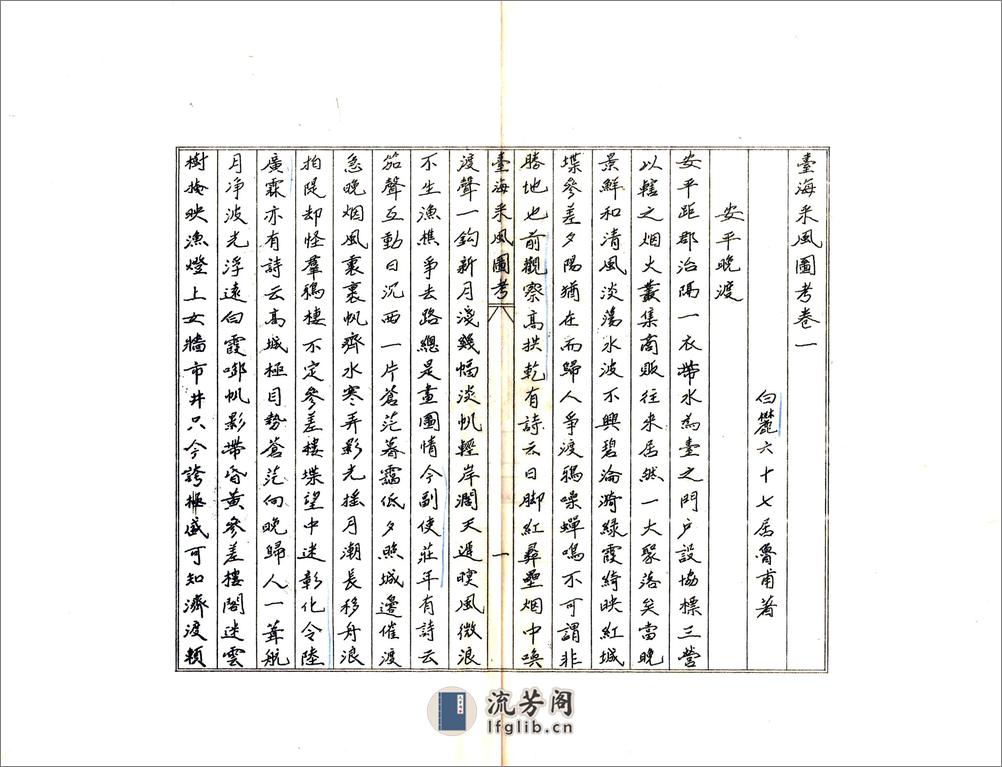 臺海采風圖考卷一
白麓六十七居魯甫著
安平晚渡
安平距郡治隔一衣帶水為臺之門戶設協標三營
以轄之烟火叢集商販往來居然一大聚落矣當晚
景鮮和清風淡蕩水波不興碧淪漪綠霞綺映紅城
堞參差夕陽猶在而歸人爭渡鴉噪蟬鳴不可謂非
勝地也前觀察高拱乾有詩云日脚紅彞壘烟中喚
臺海采風圖考
一
渡聲一鈎新月淺幾幅淡帆輕岸濶天遲暝風微浪
不生漁樵爭去路總是畫圖情今副使莊年有詩云
笳聲互動日沉西一片蒼茫暮靄低夕照城邊催渡
急晚烟風裏裏帆齊水寒弄影光搖月潮長移舟浪
拍隄却怪羣鴉棲不定參差樓堞望中迷彰化令陸
廣霖亦有詩云高城極目勢蒼茫向晚歸人一葦航
月净波光浮遠白霞啣帆影帶昏黃參差樓閣迷雲
樹掩映漁燈上女牆市井只今誇極盛可知濟渡頼
流芳阁
lfglib.cn